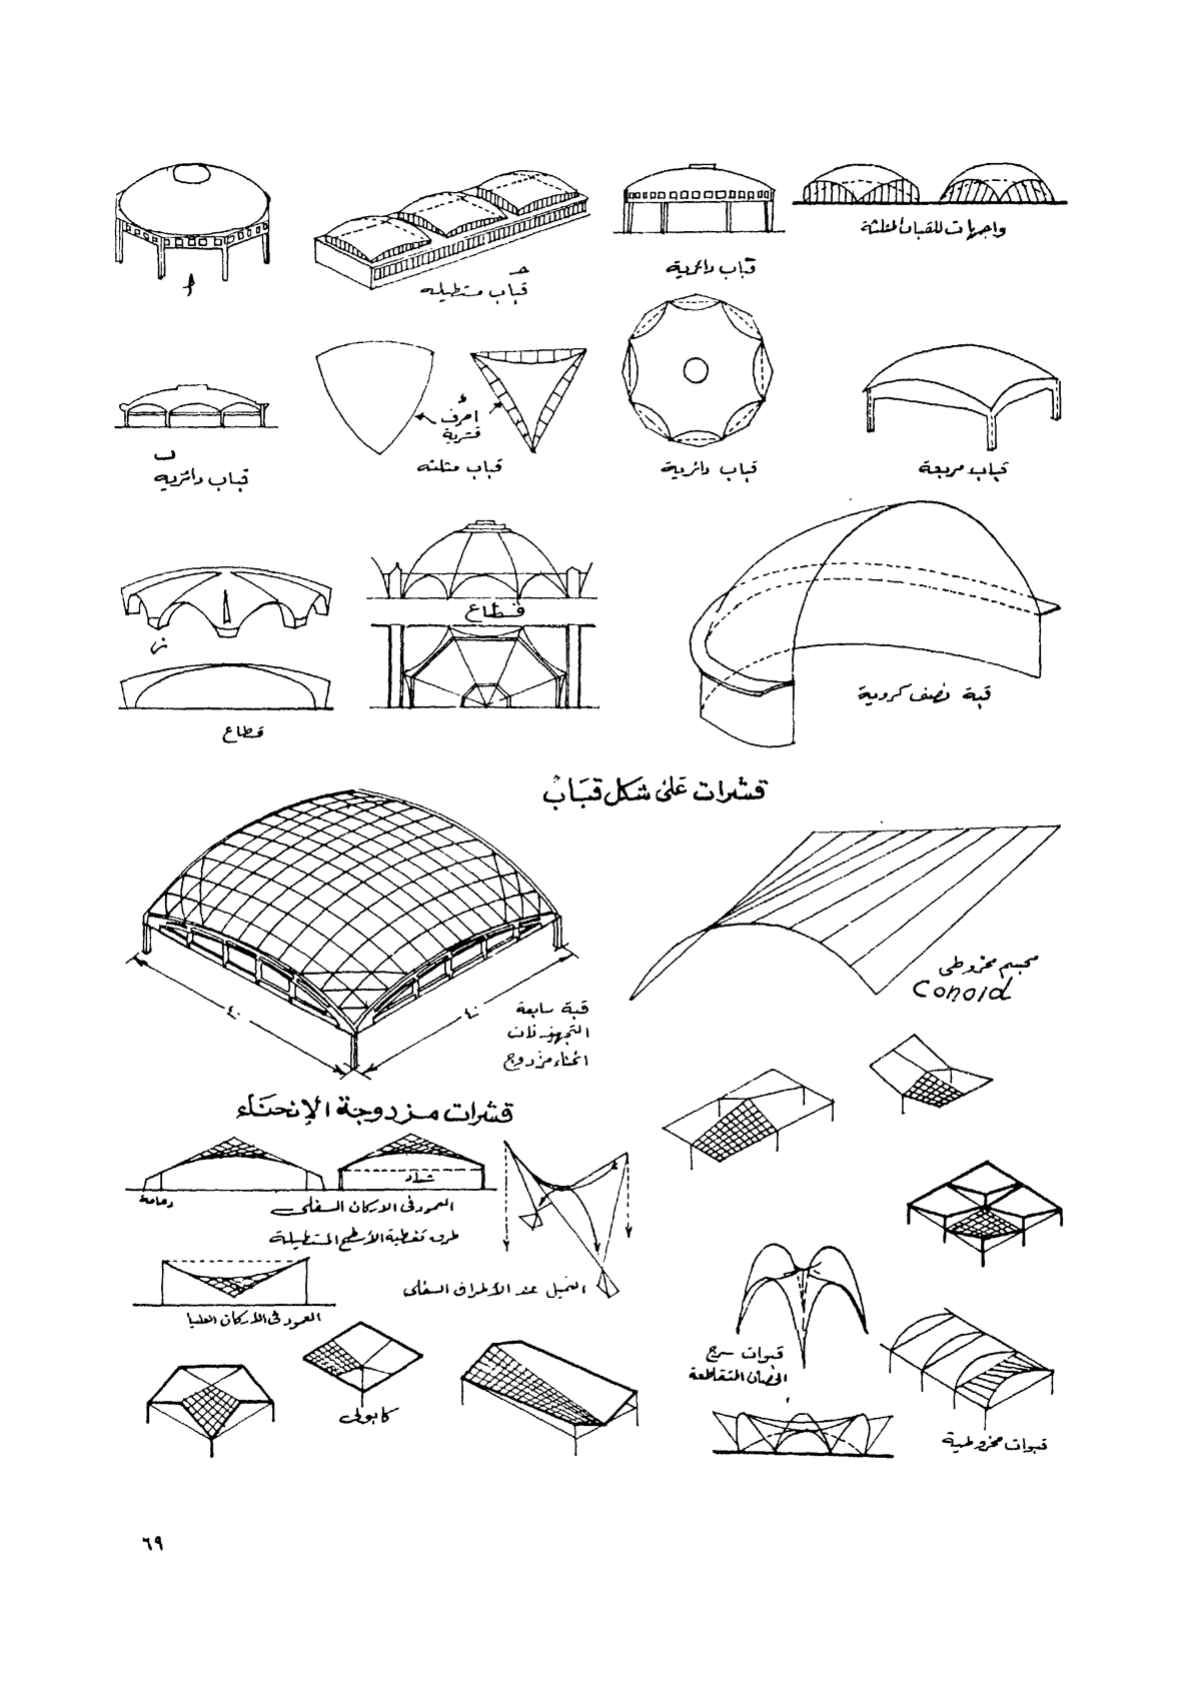 واجهات للقباب المثلثة
قباب دائرية
أ
حـ
قباب مستطيله
ب
قباب دائريه
د
احرف
قشرية
قباب مثلثه
قباب دائرية
قباب مربعة
ز
قطاع
قطاع
قبة نصف كروية
قشرات على شكل قباب
مجسم مخروطى
Conoid
٤٠
٤٠
قبة سابقة
التجهيز ذات
انحناء مزدوج
قشرات مزدوجة الإنحناء
دعامة
شداد
العمود فى الاركان السفلى
طرق تغطية الأسطح المستطيلة
العمود فى الأركان العليا
التحميل عند الأطراف السفلى
كابولى
قبوات سرج
الحصان المتقاطعة
قبوات مخروطية
٦٩